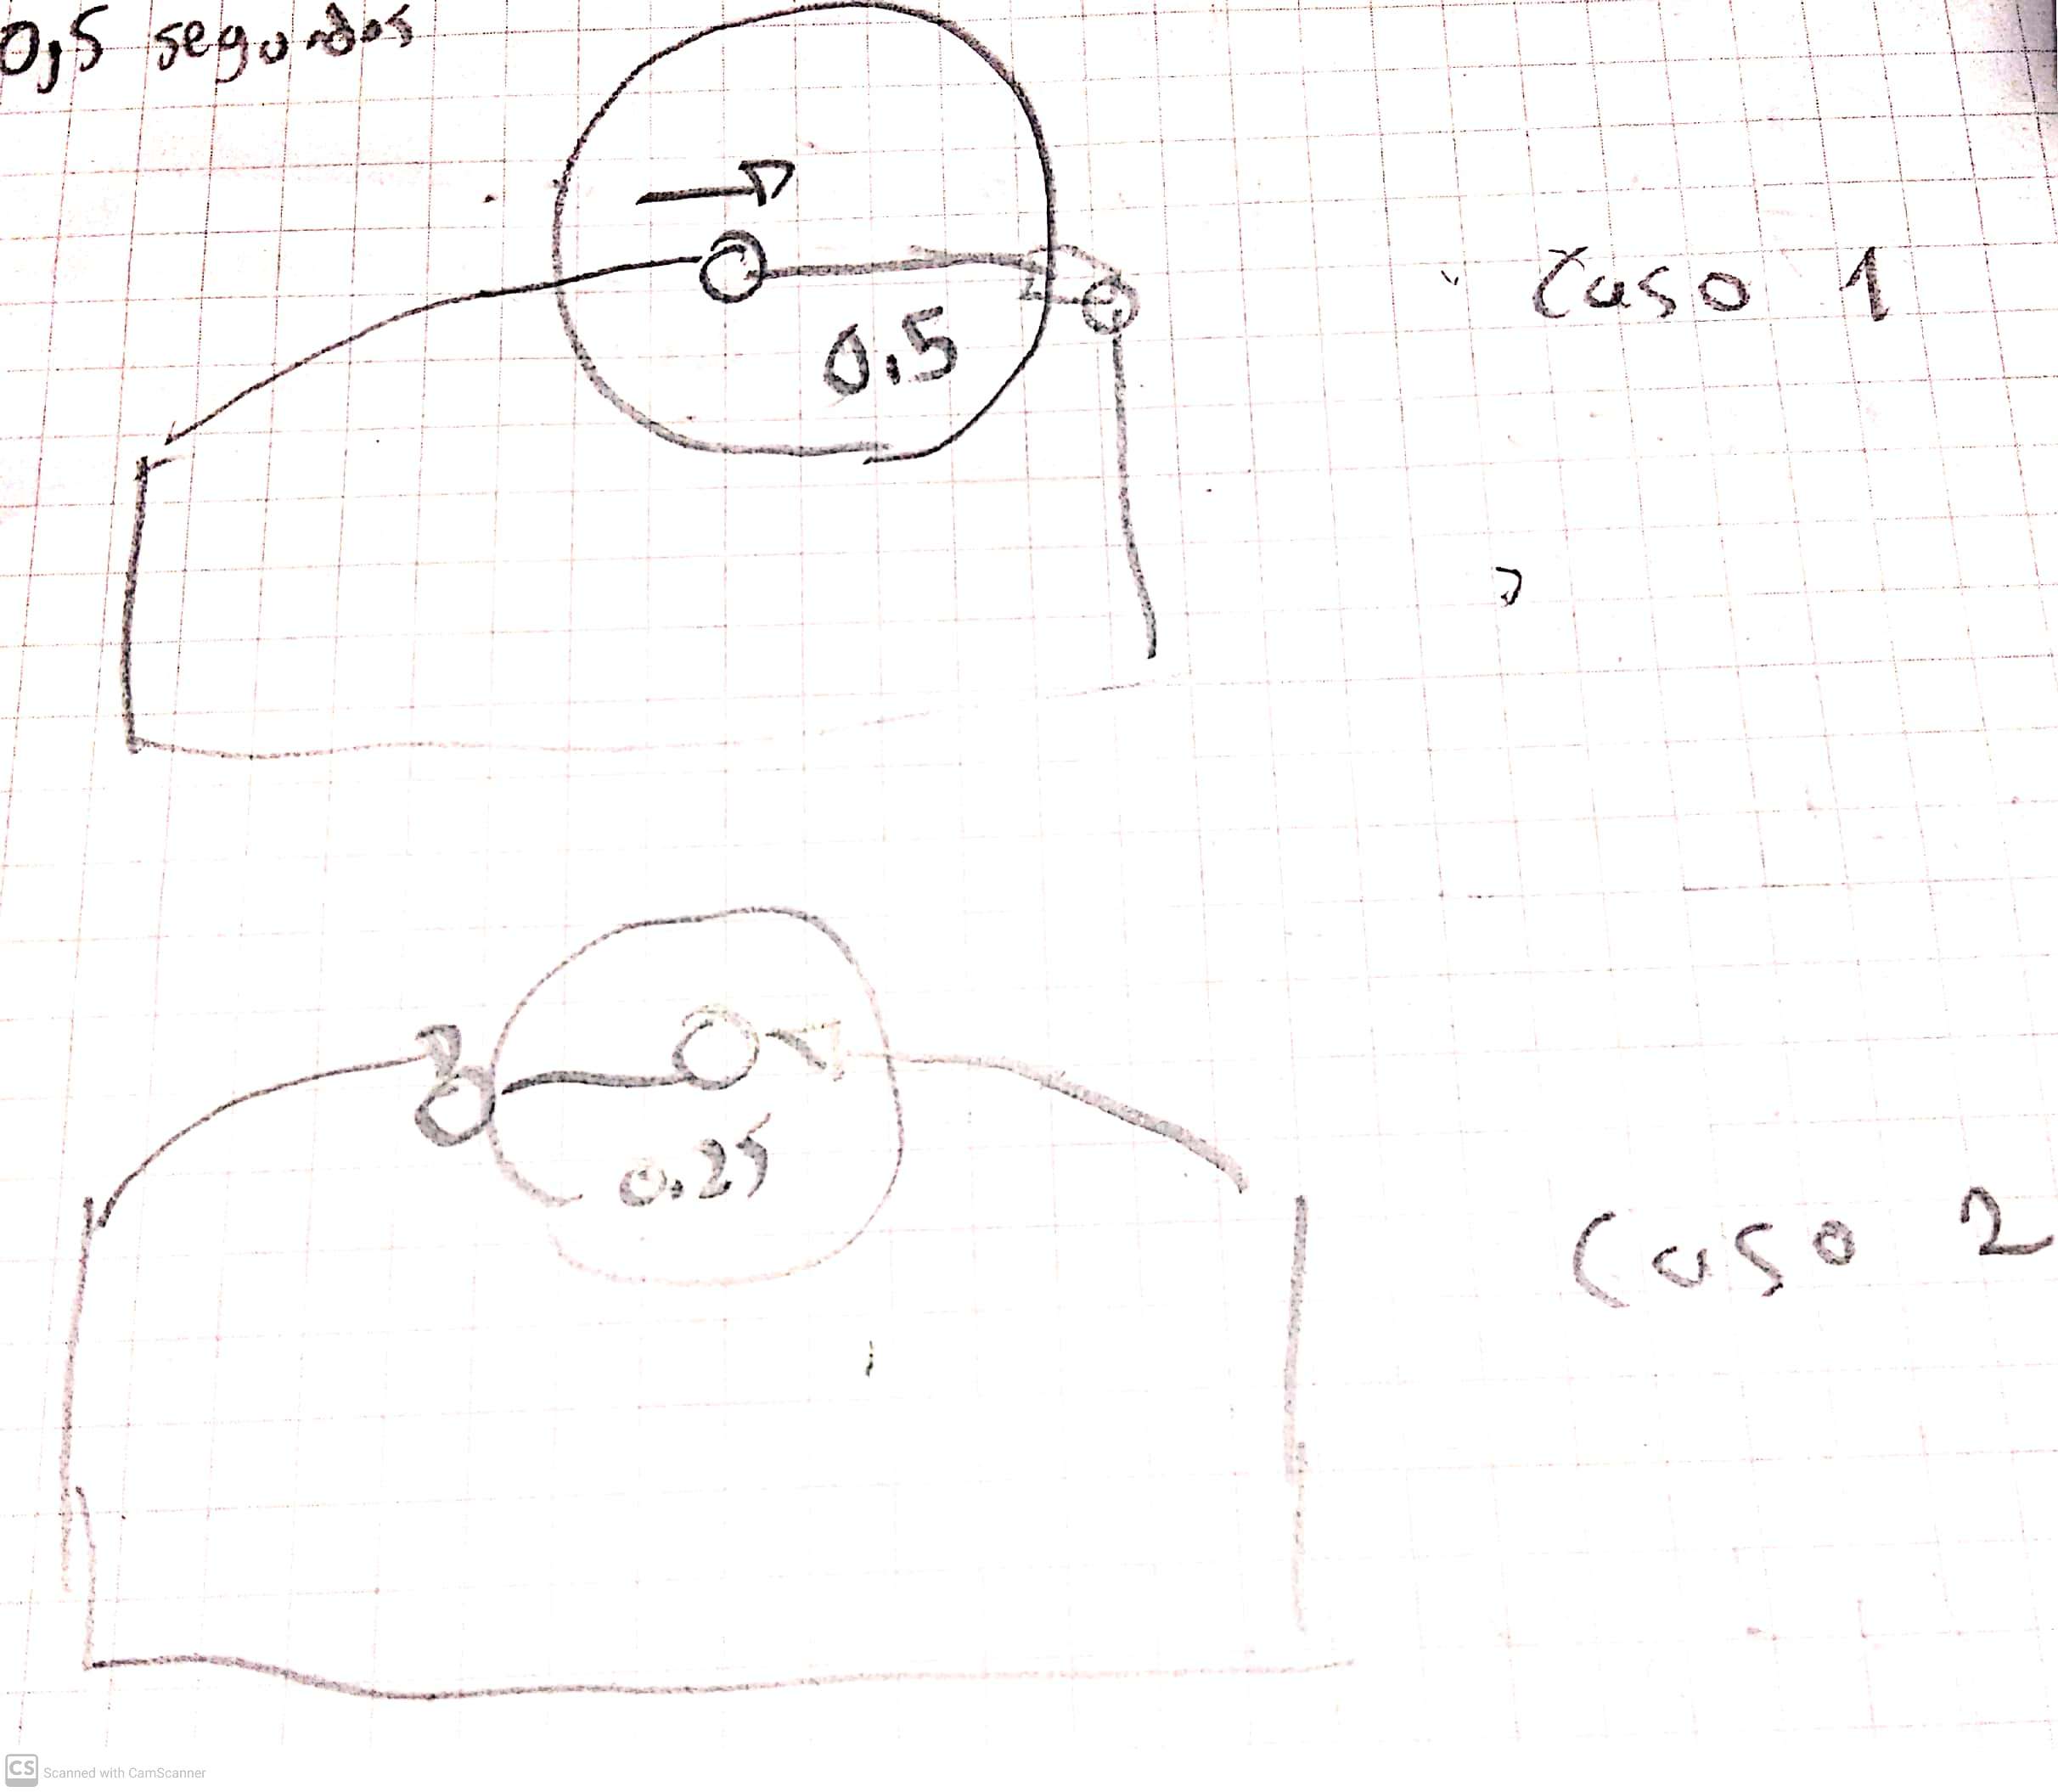 0,5 segundos
Caso 1
0.5
0.25
Caso 2
CS Scanned with CamScanner